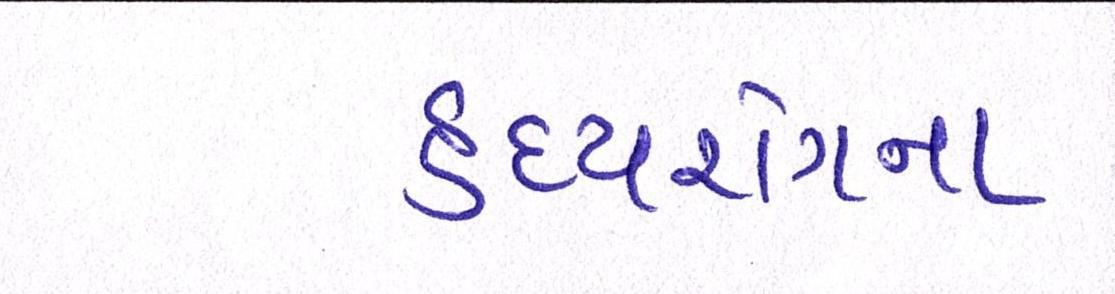 હૃદયરોગના